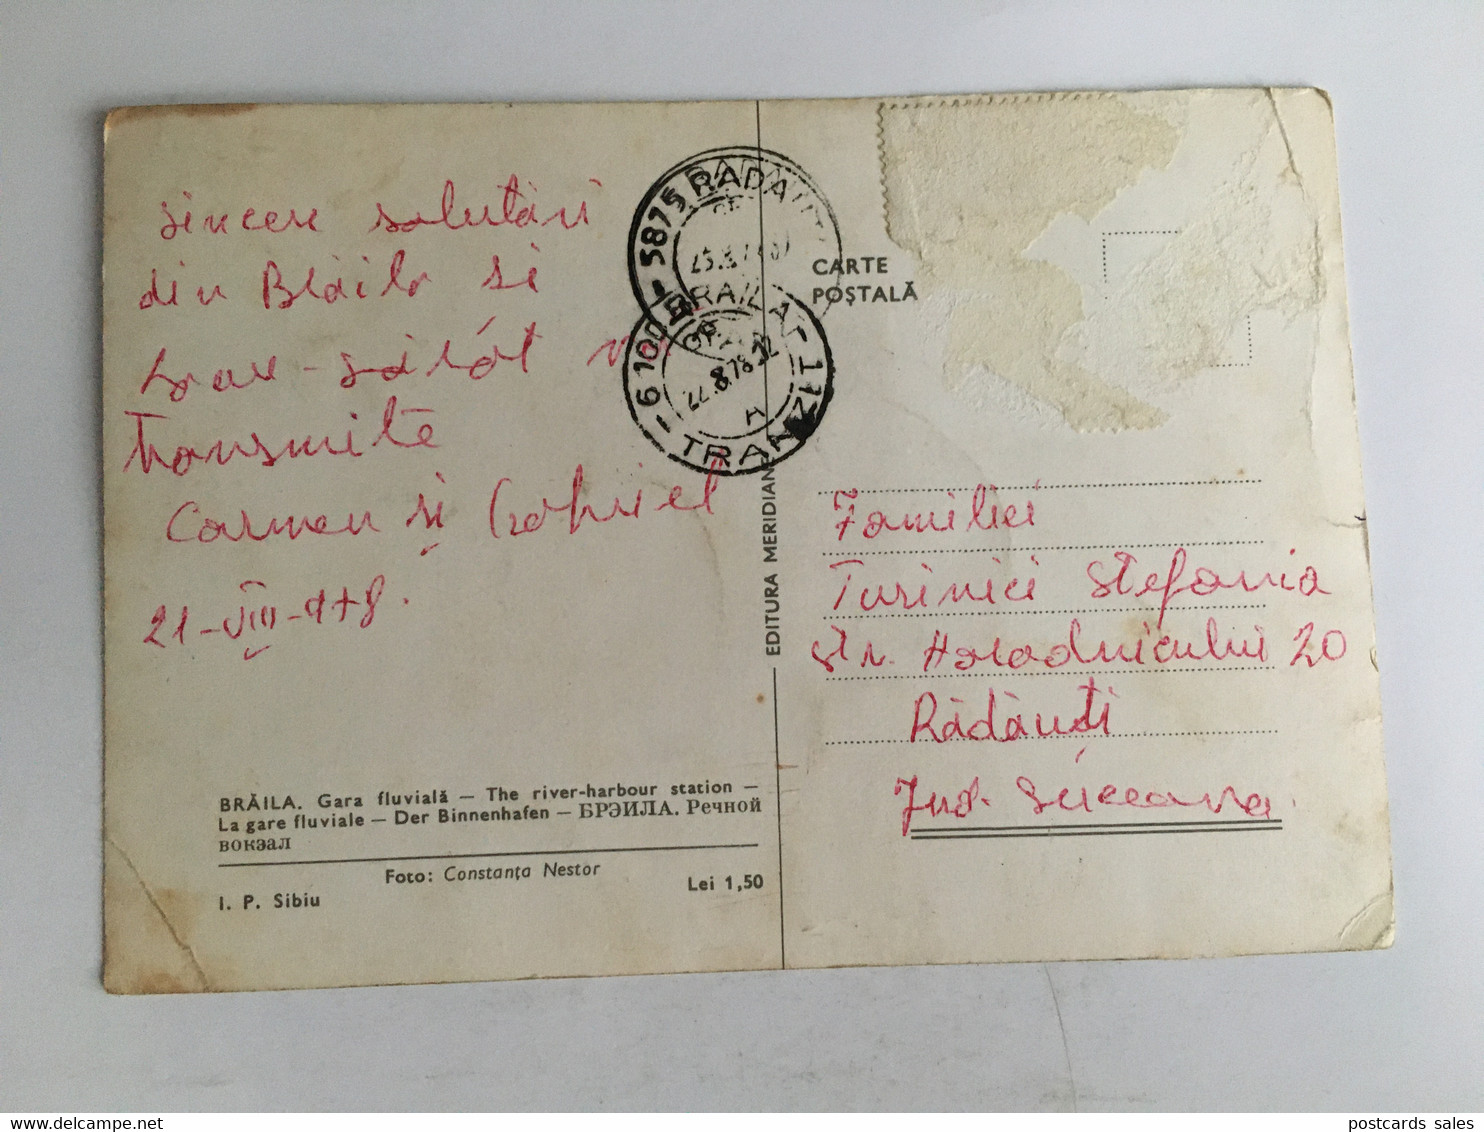 sincere salutări
din Brăila si
transmite
Carmen și Gabriel
21-VIII-978.
BRĂILA. Gara fluvială — The river-harbour station —
La gare fluviale — Der Binnenhafen — БРЭИЛА. Речной
вокзал
Foto: Constanța Nestor
I. P. Sibiu
Lei 1,50
EDITURA MERIDIANE
5875 RADAUTI
BRAILA
22.8.78.12
A
TRANZIT
6100
CARTE
POȘTALĂ
Familiei
Turinici Stefania
str. Horodnicului 20
Rădăuți
Jud. Suceava.
postcards sales